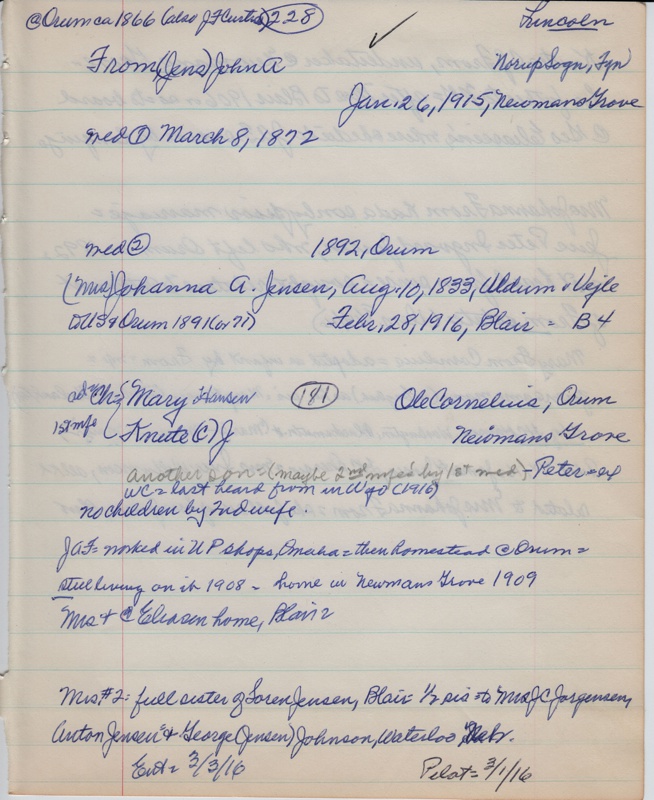 @ Orum ca 1866 (also J F Curtis) 228 Lincoln
From (Jens) John A Norup Sogn, Fyn
Jan. 26, 1915, Newmans Grove
med ① March 8, 1872
med ② 1892, Orum
(Mrs) Johanna A. Jensen, Aug. 10, 1833, Uldum Vejle
to US & Orum 1891 (or 71) Febr. 28, 1916, Blair = B4
ad Ch = { Mary Hansen 181 Ole Cornelius, Orum
1st mfe Knute C) J Newmans Grove
Another son = (maybe 2nd by 1st med) - Peter =
WC = last heard from in Wyo (1916)
no children by 2nd wife.
JAF = worked in U P shops, Omaha = then homestead @ Orum =
still living on it 1908 - home in Newmans Grove 1909
Mrs + @ Eliasen home, Blair
Mrs #2 = full sister of Soren Jensen, Blair = 1/2 sis = to Mrs J C Jorgensen,
Anton Jensen & George (Jensen) Johnson, Waterloo, Nebr.
Ent = 3/3/16 Pilot = 3/1/16